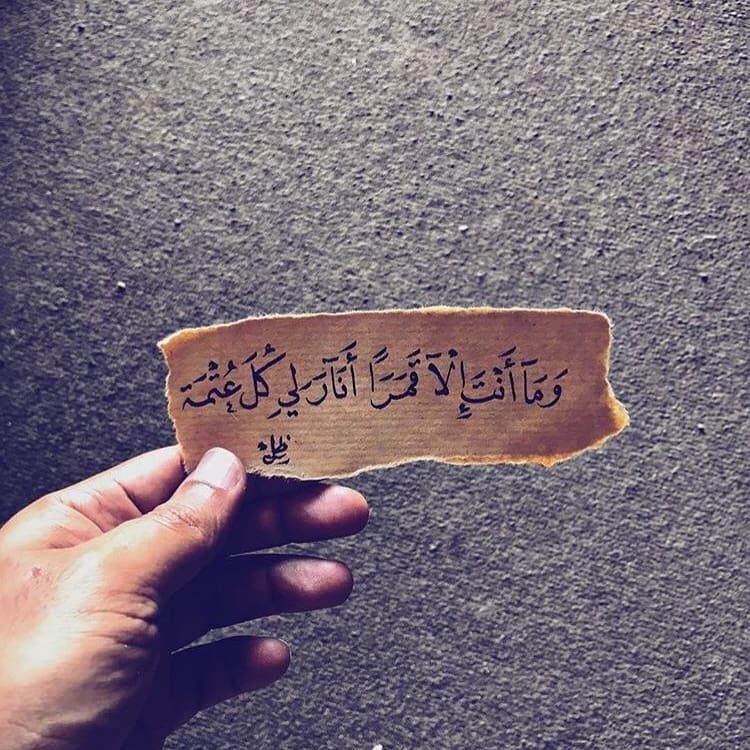 وَمَآ أَنْتَ إِلْآ قَمَرَاً أَنَآرَ لِي كُلَ عُتْمَة
ظل